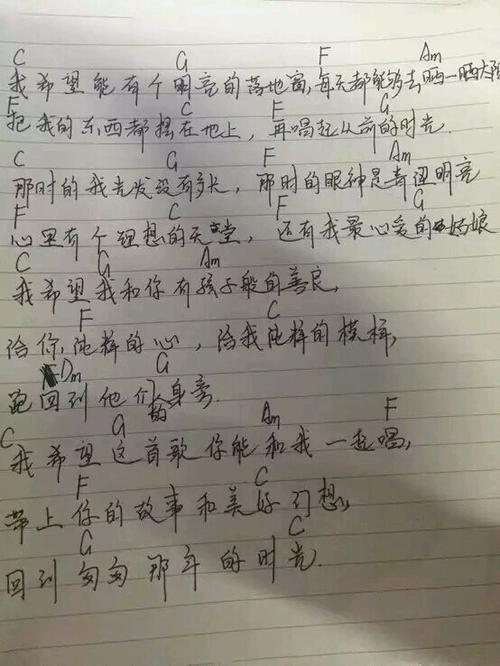 C G F Am
我希望能有个明亮的落地窗,每天都能够去晒一晒太阳
F C F G
把我的东西都摆在地上,再唱起从前的时光.
C G F Am
那时的我头发没有多长,那时的眼神是清澈明亮
F C F G
心里有个理想的天堂,还有我最心爱的姑娘
C G Am
我希望我和你有孩子般的善良,
F C
给你,纯粹的心,给我纯粹的模样,
Dm G
跑回到他们的身旁.
C G Am F
我希望这首歌你能和我一起唱,
F C
带上你的故事和美好幻想,
G C
回到匆匆那年的时光.